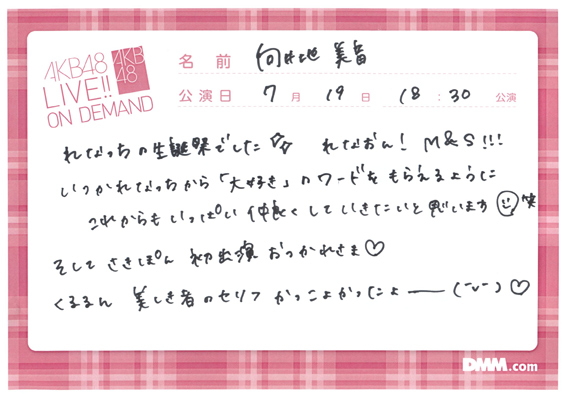 AKB48
LIVE!!
ON DEMAND
AKB
48
名前 向井地 美音
公演日 7月19日 18:30 公演
れなっちの生誕祭でした☆☆ れなおん! M&S!!!
いつかれなっちから「大好き」のワードをもらえるように
これからもいっぱい仲良くしていきたいと思います 笑
そして さきぽん 初出演 おつかれさま♡
くるるん 美しき者のセリフ かっこよかったよ―― (˘ᵕ˘) ♡
DMM.com